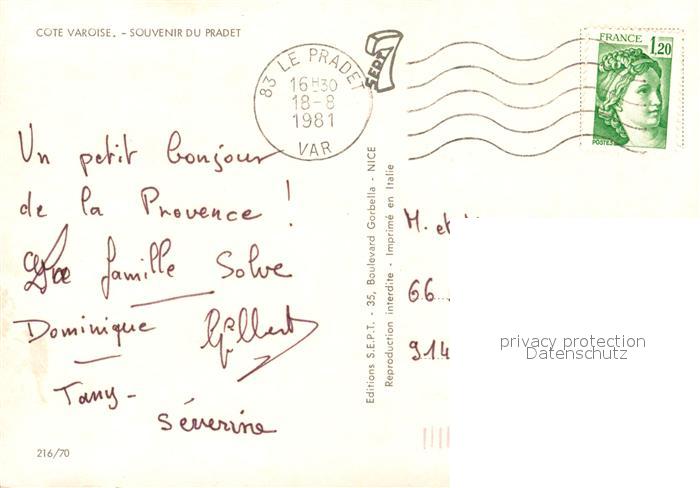 COTE VAROISE. - SOUVENIR DU PRADET
83 LE PRADET
16H30
18-8
1981
VAR
SEPT
FRANCE
1,20
POSTES
Un petit bonjour
de la Provence !
La famille Solve
Dominique Gilbert
Tany -
Séverine
216/70
Editions S.E.P.T. - 35, Boulevard Gorbella - NICE
Reproduction interdite - Imprimé en Italie
M. et
66
914
privacy protection
Datenschutz